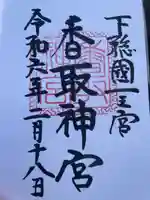 下総國一之宮
香取神宮
令和六年二月十八日